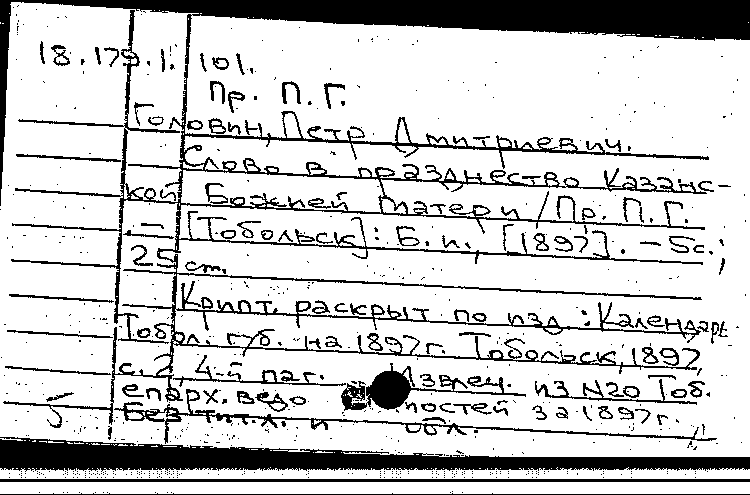 18.179.1. 101.
Пр. П.Г.
Головин, Петр Дмитриевич.
Слово в празднество Казанс-
кой Божией Матери / Пр. П.Г.
. – [Тобольск]: Б.и., [1897]. – 5с.;
25 см.
Крипт. раскрыт по изд.: Календарь
Тобол. губ. на 1897г. Тобольск, 1897,
с. 2, 4-й паг. Извлеч. из N20 Тоб.
епарх. ведо мостей за 1897г.
Без тит.л. и обл.
5